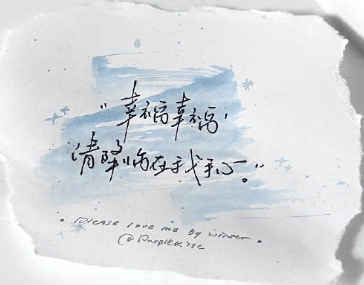 "幸福幸福,
请降临在我手心。"
• Please love me by winter •